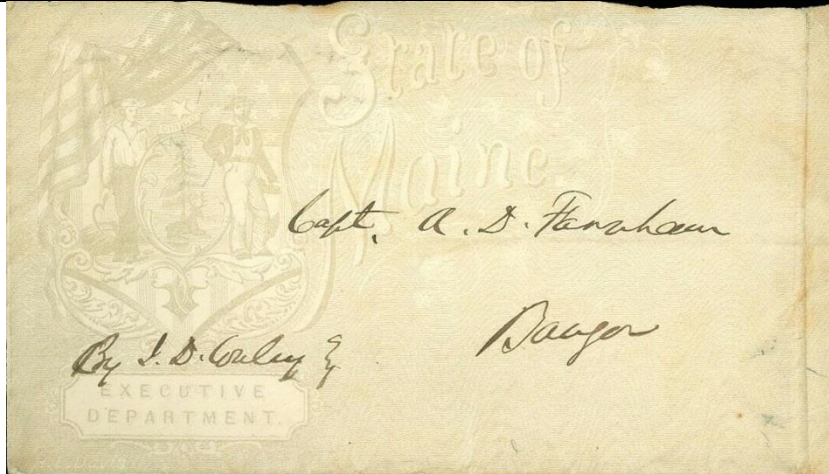 State of
Maine
Capt. A. D. Farnham
Bangor
By J. D.
EXECUTIVE
DEPARTMENT.